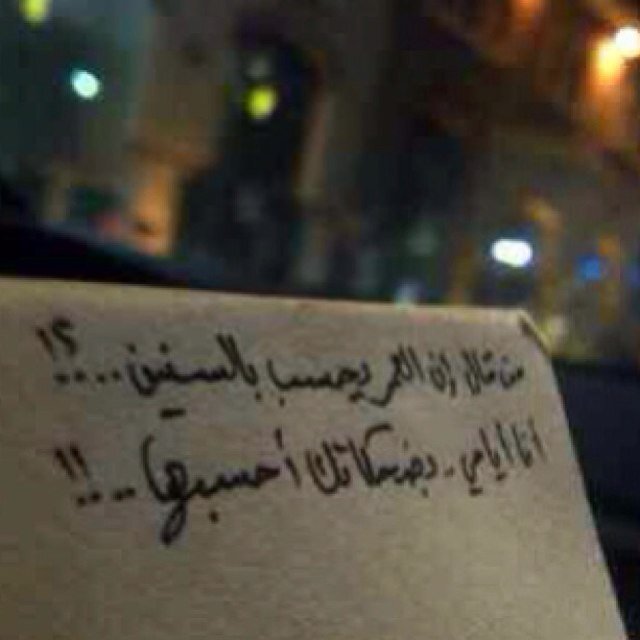 من قال إن العمر يحسب بالسنين ..؟!
أنا أيامي .. بضحكاتك أحسبها ..!!